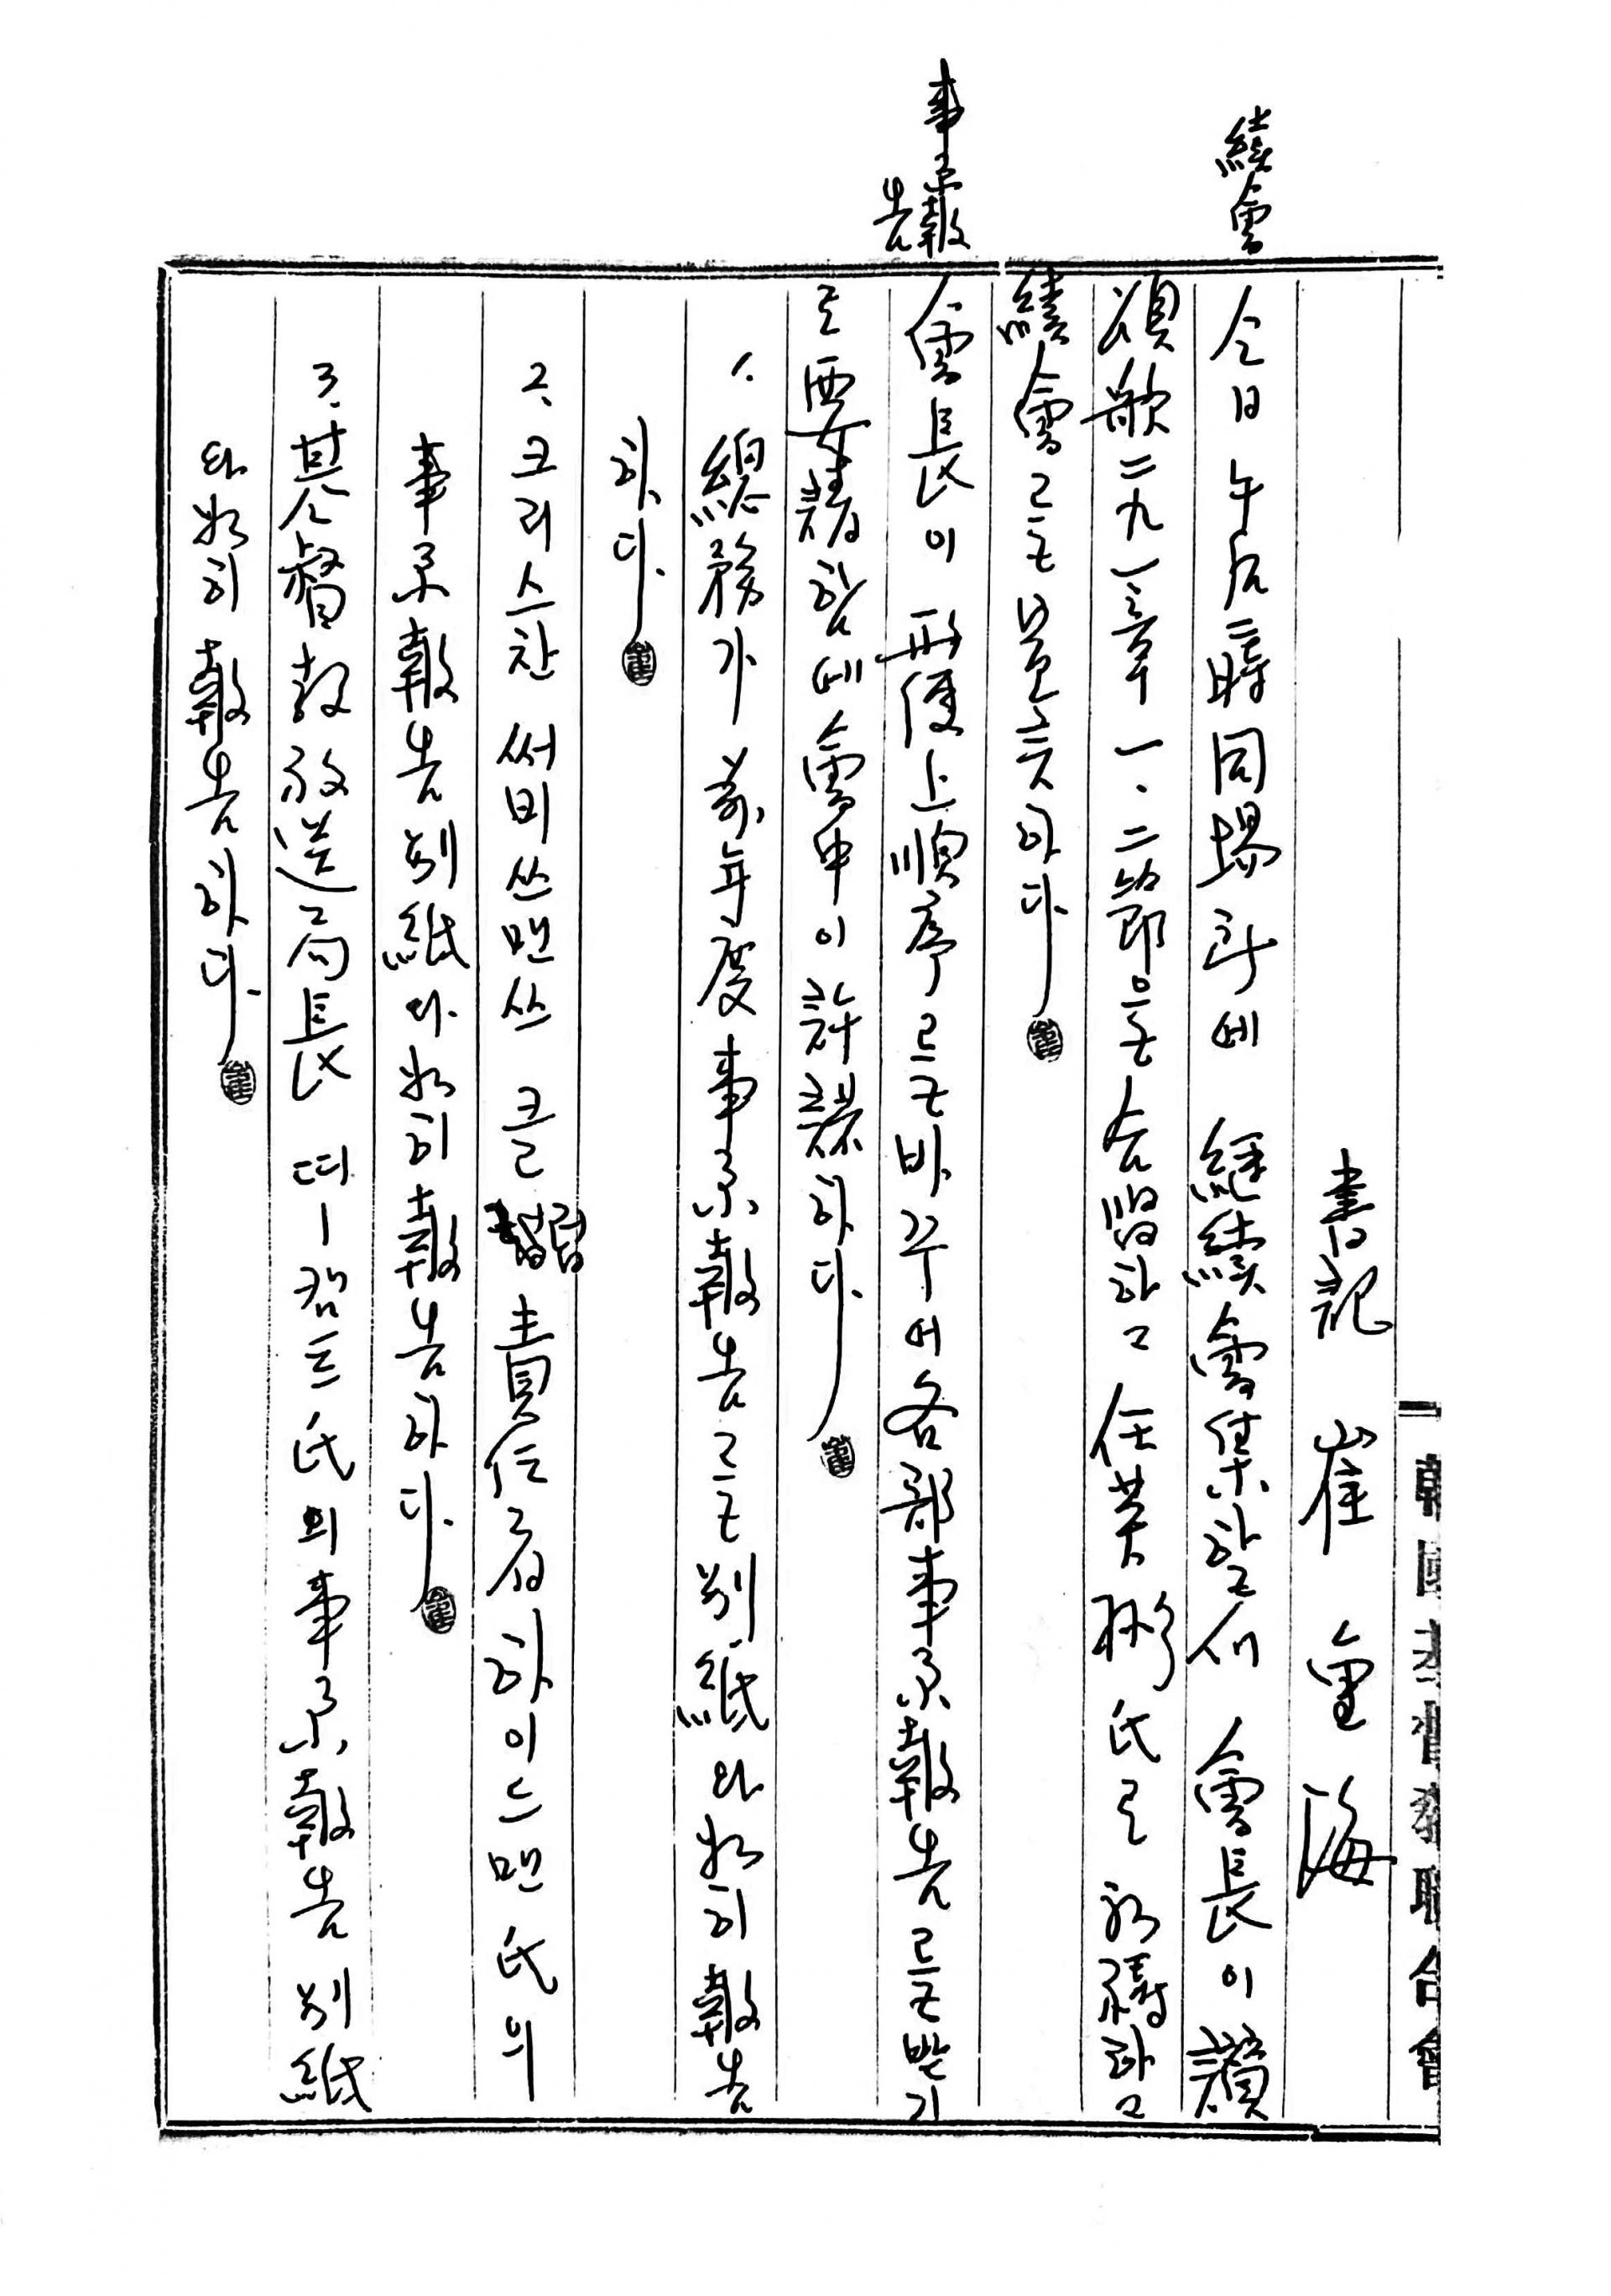 韓國基督教聯合會
書記 崔重海
續會
今日午后二時同場所에 繼續會集할새 會長이 讚
頌歌二九一章 一、二節을 合唱하고 任英彬氏로 祈禱하고
續會를 宣言하다.
事業報告
會長이 形便上 順序를 바꾸어 各部事業報告를 받기
로 要請함에 會中이 許諾하다.
1. 總務가 前年度事業報告를 別紙와 如히 報告
하다.
2. 크리스찬 써비쓰 맨쓰 클럽 責任者 하이드맨氏의
事業報告 別紙와 如히 報告하다.
3. 基督教放送局長 띠-캠프氏의 事業報告 別紙
와 如히 報告하다.